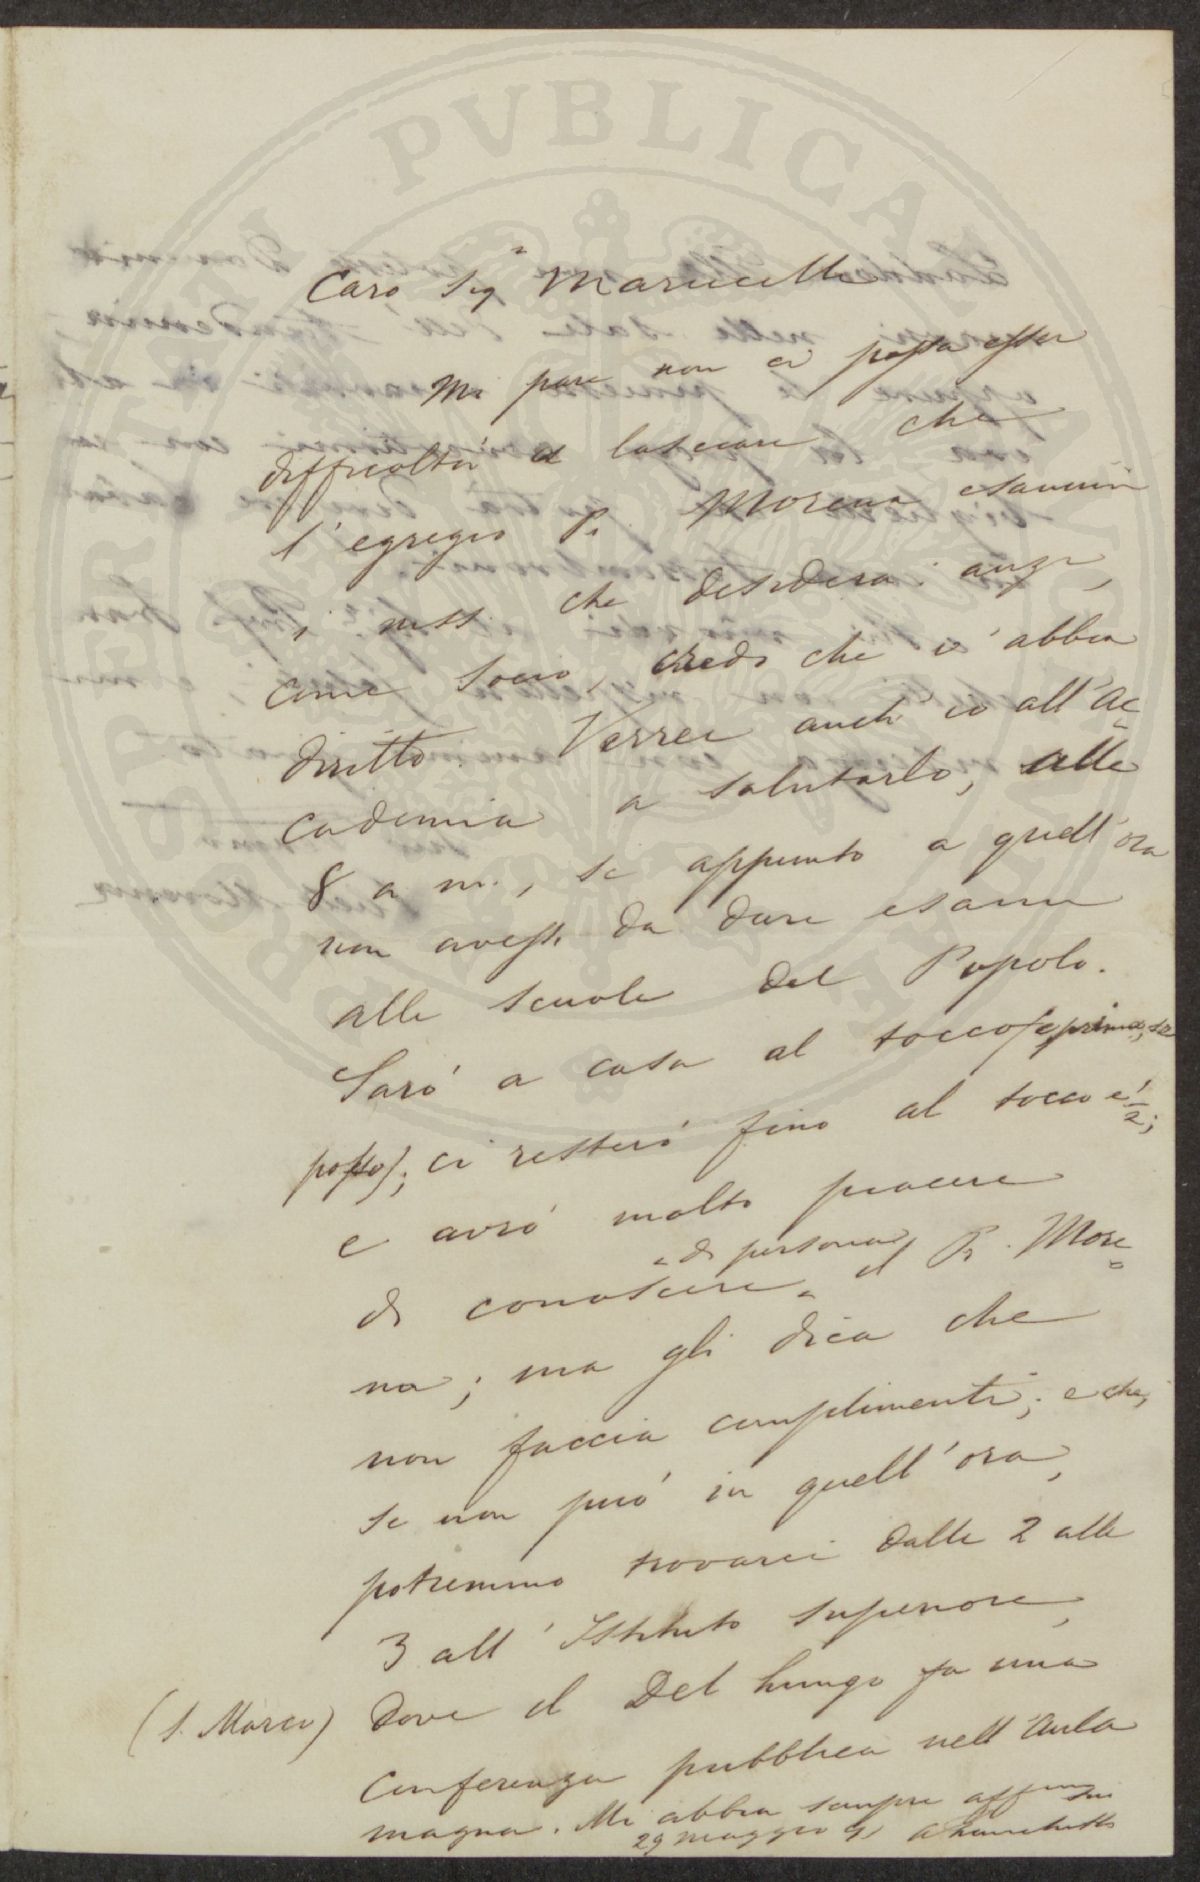 Caro Sigr Marucelli
Mi pare non ci possa esser
difficoltà a lasciare che
l'egregio Pr. Morena esamini
i mss. che desidera: anzi,
come socio, credo che ci abbia
diritto. Verrei anch' io all'Ac-
cademia a salutarlo, alle
8 a m., se appunto a quell'ora
non avessi da dare esame
alle scuole del Popolo.
Sarò a casa al tocco (e prima, se
posso); ci resterò fino al tocco e 1/2;
e avrò molto piacere
di conoscere di persona il Pr. More-
na; ma gli dica che
non faccia complimenti; e che,
se non può in quell'ora,
potremmo trovarci dalle 2 alle
3 all' Istituto Superiore,
(S. Marco) dove il Del Lungo fa una
conferenza pubblica nell'Aula
magna. Mi abbia sempre aff suo
29 maggio 91
PERITATI PVBLICAE